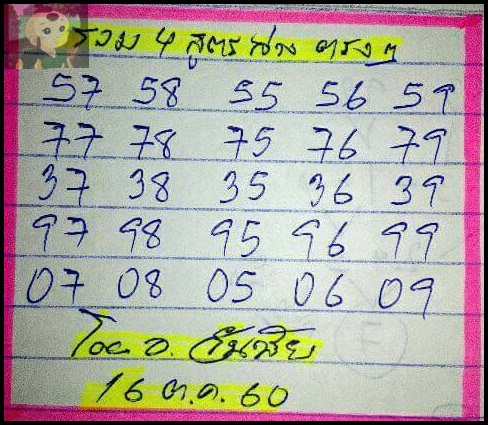 รวม 4 สูตร ล่าง ตรงๆ
57 58 55 56 59
77 78 75 76 79
37 38 35 36 39
97 98 95 96 99
07 08 05 06 09
โดย อ.
16 ต.ค. 60